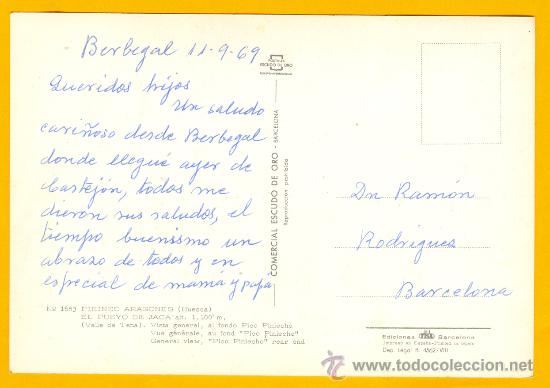 Berbegal 11-9-69
Queridos hijos
Un saludo
cariñoso desde Berbegal
donde llegué ayer de
Castejón, todos me
dieron sus saludos, el
tiempo buenisimo un
abrazo de todos y en
especial de mamá y papá
ESCUDO DE ORO
COMERCIAL ESCUDO DE ORO - BARCELONA
Reproducción prohibida
Dn Ramón
Rodrigues
Barcelona
N.º 1553 PIRINEO ARAGONES (Huesca)
EL PUEYO DE JACA alt. 1.100 m.
(Valle de Tena). Vista general, al fondo Pico Piniecho
Vue générale, au fond "Pico Piniecho"
General view, "Pico Piniecho" rear end
Ediciones Barcelona
Impreso en España-Printed in Spain
Dep. Legal B. 4562-VIII
todocoleccion.net